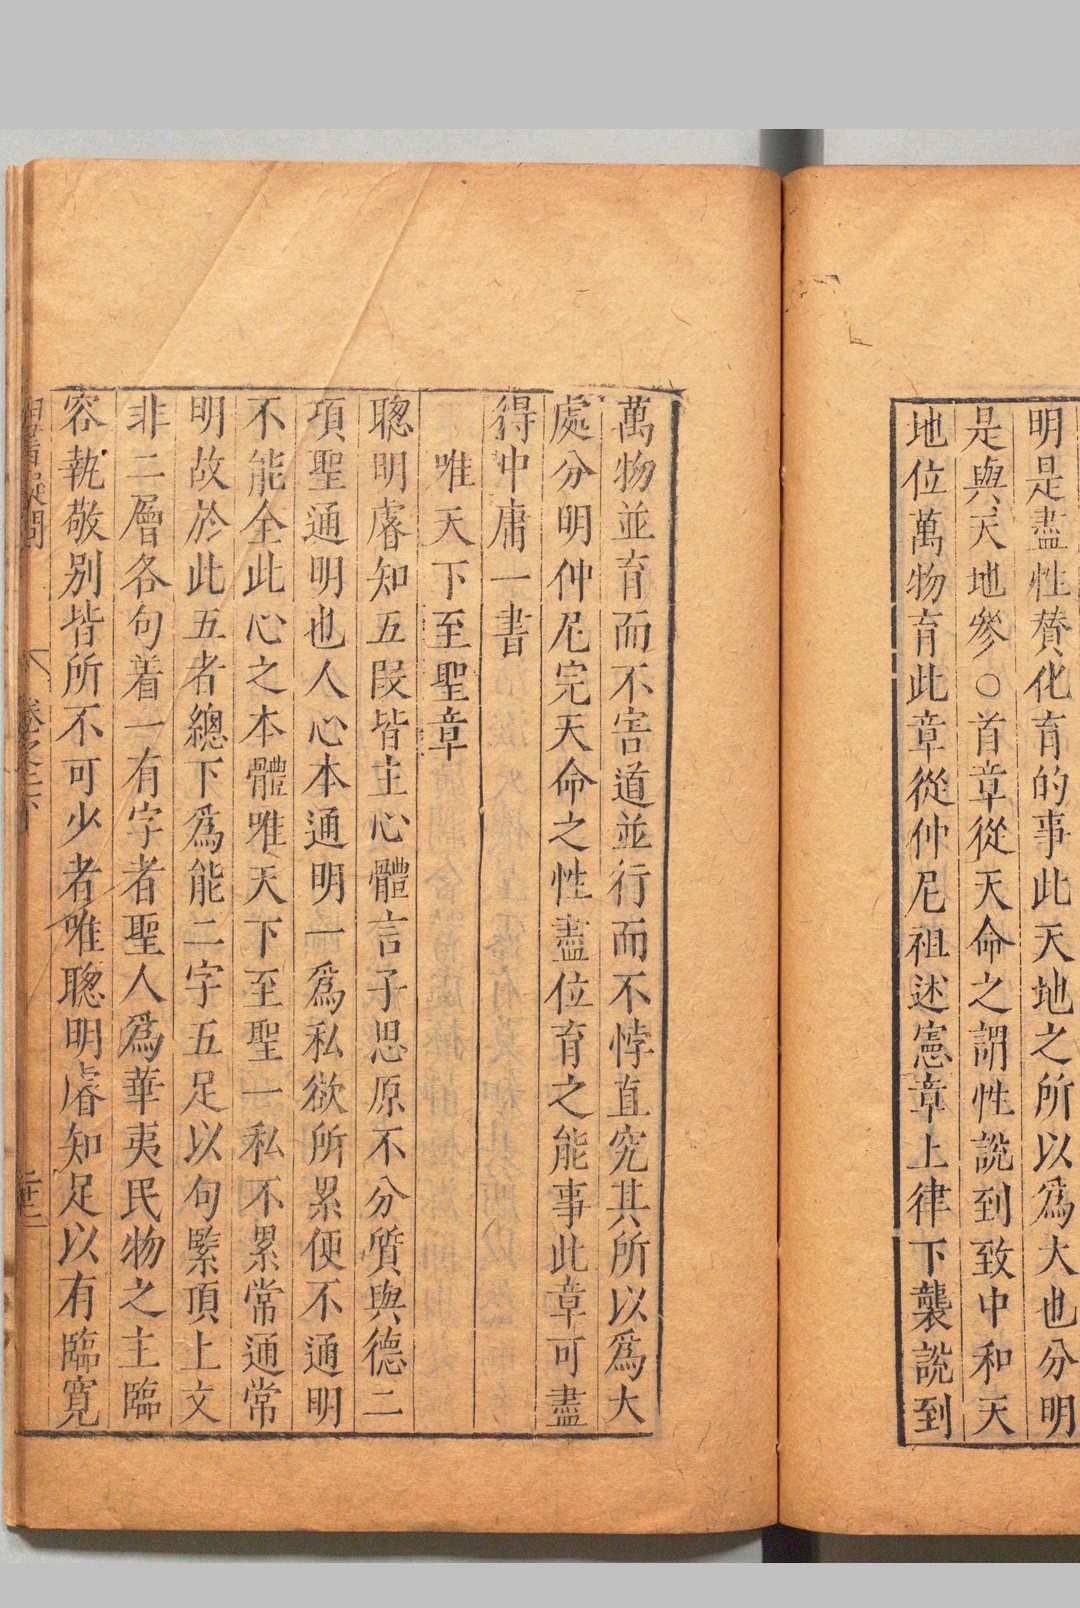 明是盡性贊化育的事此天地之所以爲大也分明
是與天地參○首章從天命之謂性說到致中和天
地位萬物育此章從仲尼祖述憲章上律下襲說到
萬物並育而不害道並行而不悖直究其所以爲大
處分明仲尼完天命之性盡位育之能事此章可盡
得中庸一書
唯天下至聖章
聰明睿知五段皆主心體言子思原不分質與德二
項聖通明也人心本通明一爲私欲所累便不通明
不能全此心之本體唯天下至聖一私不累常通常
明故於此五者總下爲能二字五足以句緊頂上文
非二層各句着一有字者聖人爲華夷民物之主臨
容執敬別皆所不可少者唯聰明睿知足以有臨寬
卷之下